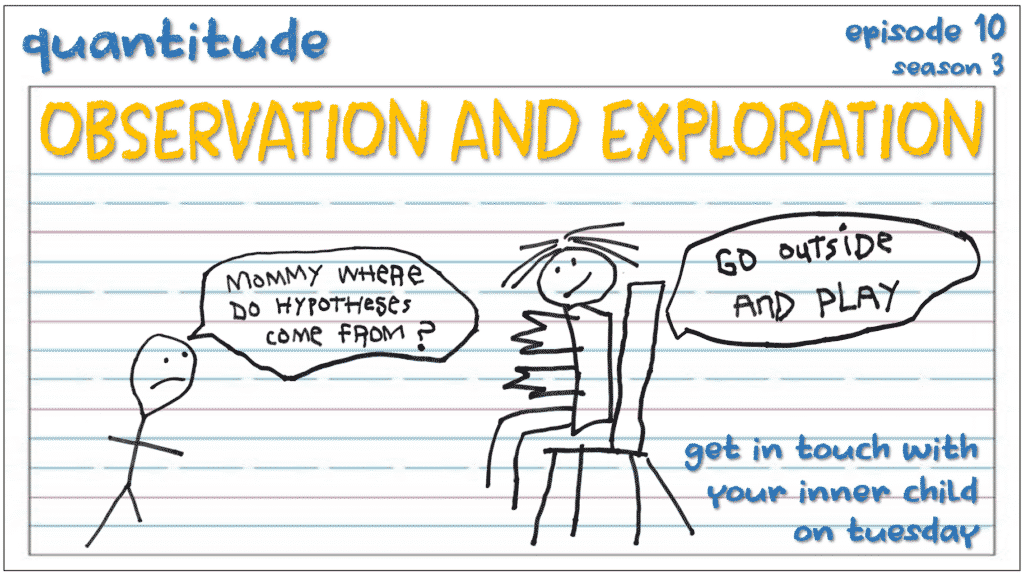 quantitude
episode 10
season 3
OBSERVATION AND EXPLORATION
MOMMY WHERE
DO HYPOTHESES
COME FROM?
GO OUTSIDE
AND PLAY
get in touch with
your inner child
on tuesday